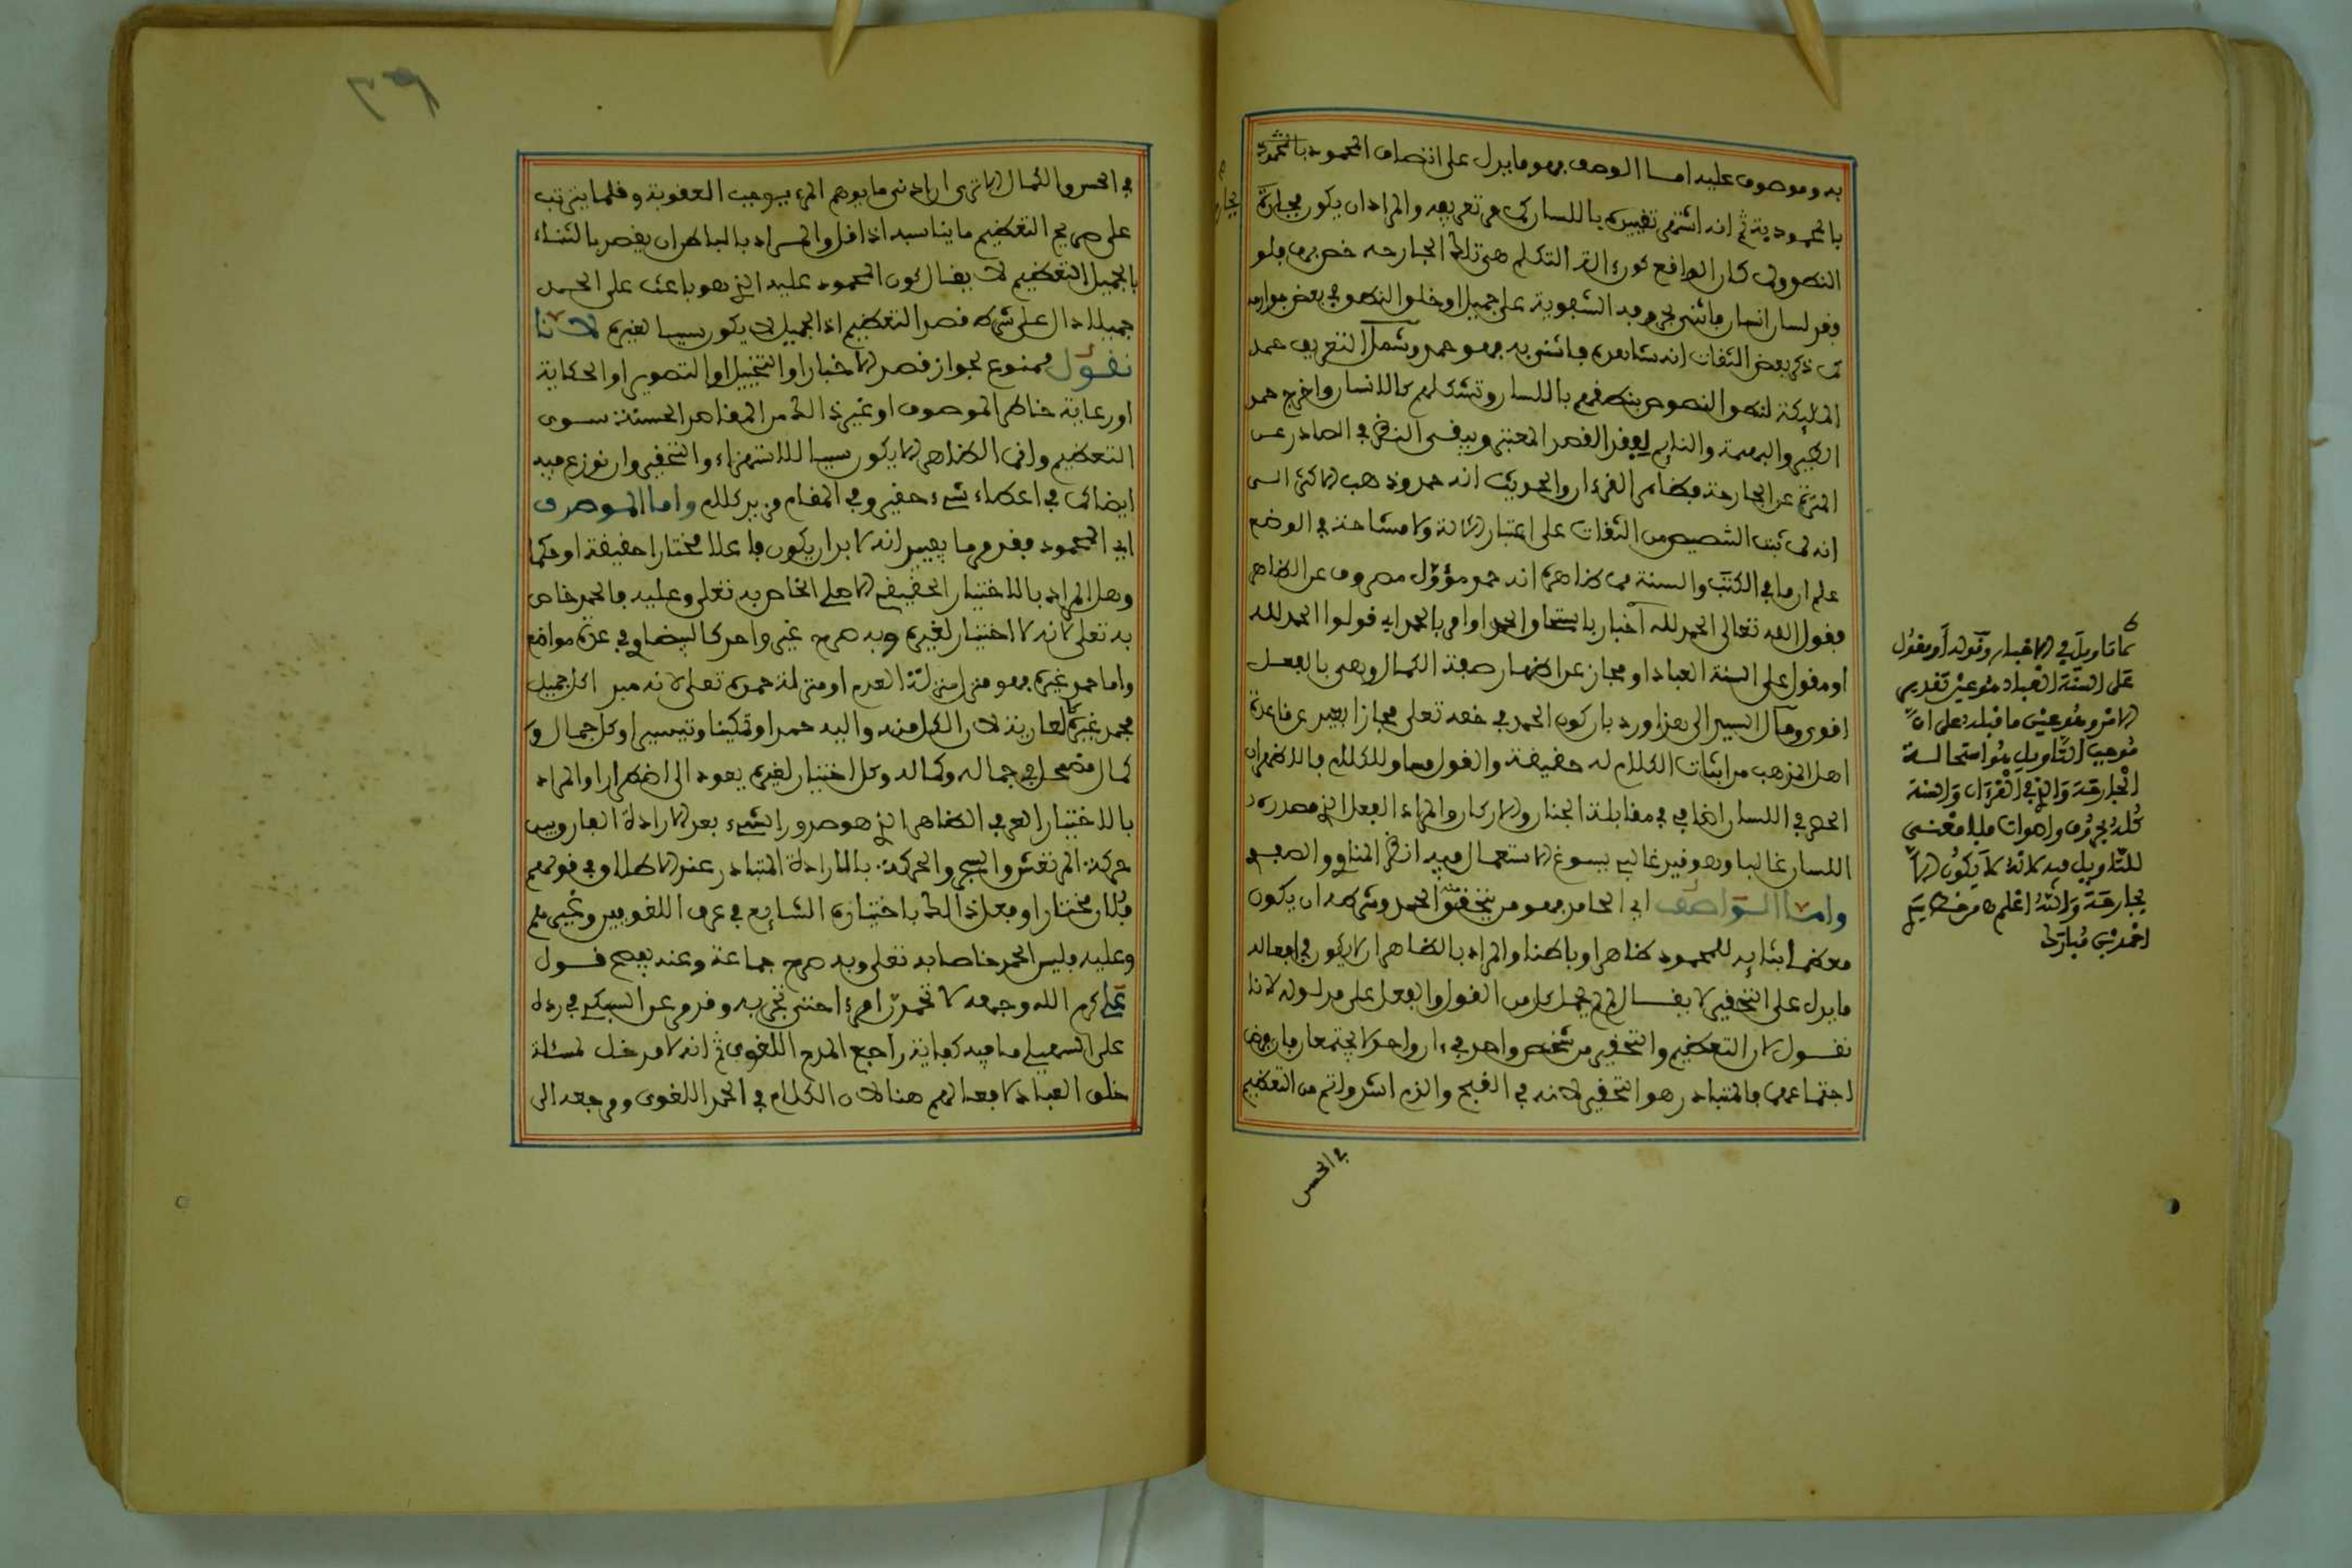 به وموصوف عليه امـا الوصف فهو ما يدل على اتصاف المحمود بالمحمود
بالمحمودية ثم انه اشتهر تقييده باللسان كما في تعريفه والمراد ان يكون بجارحة
النطق ولما كان الواقع كون آلة التكلم هي تلك الجارحة خص بها فلو
فقد لسان انسان فاثنى بحروفه الشفوية على جميل او خلق النطق في بعض جوارحه
كما ذكر بعض الثقات انه شاهده فاثنى به فهو حمد وشمل التعريف حمد
الملئكة لنطق النصوص بنطقهم باللسان وتشكلهم كالانسان واخرج حمد
الطير والبهيمة والنايم لفقد القصد المعتبر وبقي النظر في الصادر عن
المنزه عن الجارحة فظاهر القرءان والحديث انه حمد وذهب الاكثر الى
انه لما ثبت التخصيص من الثقات على اعتبار الالة ولا مشاحة في الوضع
علم ان ما في الكتب والسنة مما ظاهره انه حمد مؤول مصروف عن الظاهر
فقول الله تعالى الحمد لله اخبار باستحقاق الحمد او امر بالحمد اي قولوا الحمد لله
او مقول على السنة العباد او مجاز عن اظهار صفة الكمال وهي بالفعل
اقوى ومال السيد الى هذا ورد بان كون الحمد في حقه تعلى مجازا بعيد عن قاعدة
اهل المذهب من اثبات الكلام له حقيقة والقول مساو للكلام فالاظهر ان
الحصر في اللسان اضافي في مقابلة الجنان والاركان والمراد الفعل الذي مصدره
اللسان غالبا وهو قيد غالبي يسوغ الاستعمال فيه انظر المناوي والصبح
وامـا الـواصف اي الحامد فهو من يتحقق منه الحمد وشرطه ان يكون
معظما بثنايه للمحمود ظاهرا وباطنا والمراد بالظاهر ان لا يكون في افعاله
ما يدل على التحقير لا يقـال لم لم يحمل كل من القول والفعل على مدلوله لانا
نقـول لان التعظيم والتحقير من شخص واحد في ءان واحد لا يجتمعان فان فرض
اجتماعهما فالمتبادر هو التحقير لانه في القبح والذم اشد واتم من التعظيم
في الحسن
كما تاويل في الاخبار وقوله او مقول
على السنة العباد هو عين تقدير
الامر وهو عين ما قبله على ان
موجب التاويل هو استحالة
الجارحة والذي في القرءان والسنة
كله بحروف واصوات فلا معنى
للتاويل فيه لانه لا يكون الا
بجارحة والله اعلم ه من خط سيدي
احمد بن مبارك
في الحسن والكمال الا ترى ان ادنى ما يوهم المرء يـوجب العقوبة وقلما يترتب
على صريح التعظيم ما يناسبه اذا قل والمـراد بالباطن ان يقصد بالثناء
بالجميل التعظيم لا يقـال كون المحمود عليه الذي هو باعث على الحمد
جميلا دال على شرط قصد التعظيم اذ الجميل لا يكون سببا لغيره لانا
نقـول ممنوع لجواز قصد الاخبار او التخييل او التصوير او الحكاية
او رعاية خاطر الموصوف او غير ذالك من المقاصد الحسنة سـوى
التعظيم وافي الظاهر لا يكون سببا للاستهزاء والتحقير وان نوزع فيه
ايضا كما في اعطاء شيء حقير وفي المقام مزيد كلام واما الموصوف
اي المحمود فقد مر ما يفيد انه لا بد ان يكون فاعلا مختارا حقيقة او حكما
وهل المراد بالاختيار الحقيقي الاصلي الخاص به تعلى وعليه فالحمد خاص
به تعلى لانه لا اختيار لغيره وبه صرح غير واحد كالبيضاوي في عدة مواضع
واما حمد غيره فهو منزل منزلة العدم او منزلة حمده تعلى لانه مبدا كل جميل
فحمد غيره كالعارية لان الكل منه واليه حمدا وتمكينا وتيسيرا وكل جمـال و
كمـال مضمحل في جماله وكماله وكل اختيار لغيره يعود الى اضطرار او المراد
بالاختيار العرفي الظاهر الذي هو صدور الشيء بعد الارادة الفارق بين
حركة المرتعش والصحيح والحركة بالارادة المتبادر عند الاطلاق وفي قولهم
فلان مختار او فعل ذالك باختياره الشايع في عرف اللغويين وغيرهم
وعليه فليس الحمد خاصا به تعلى وبه صرح جماعة وعنده يصح قـول
علي كرم الله وجهه لا تحمدن امرءا حتى تجربه وقد مر عن السبكي في رده
على السهيلي ما فيه كفاية راجع المدح اللغوي ثم انه لا مدخـل لمسئلة
خلق العباد لافعـالهم هنا لان الكلام في الحمد اللغوي ومرجعه الى